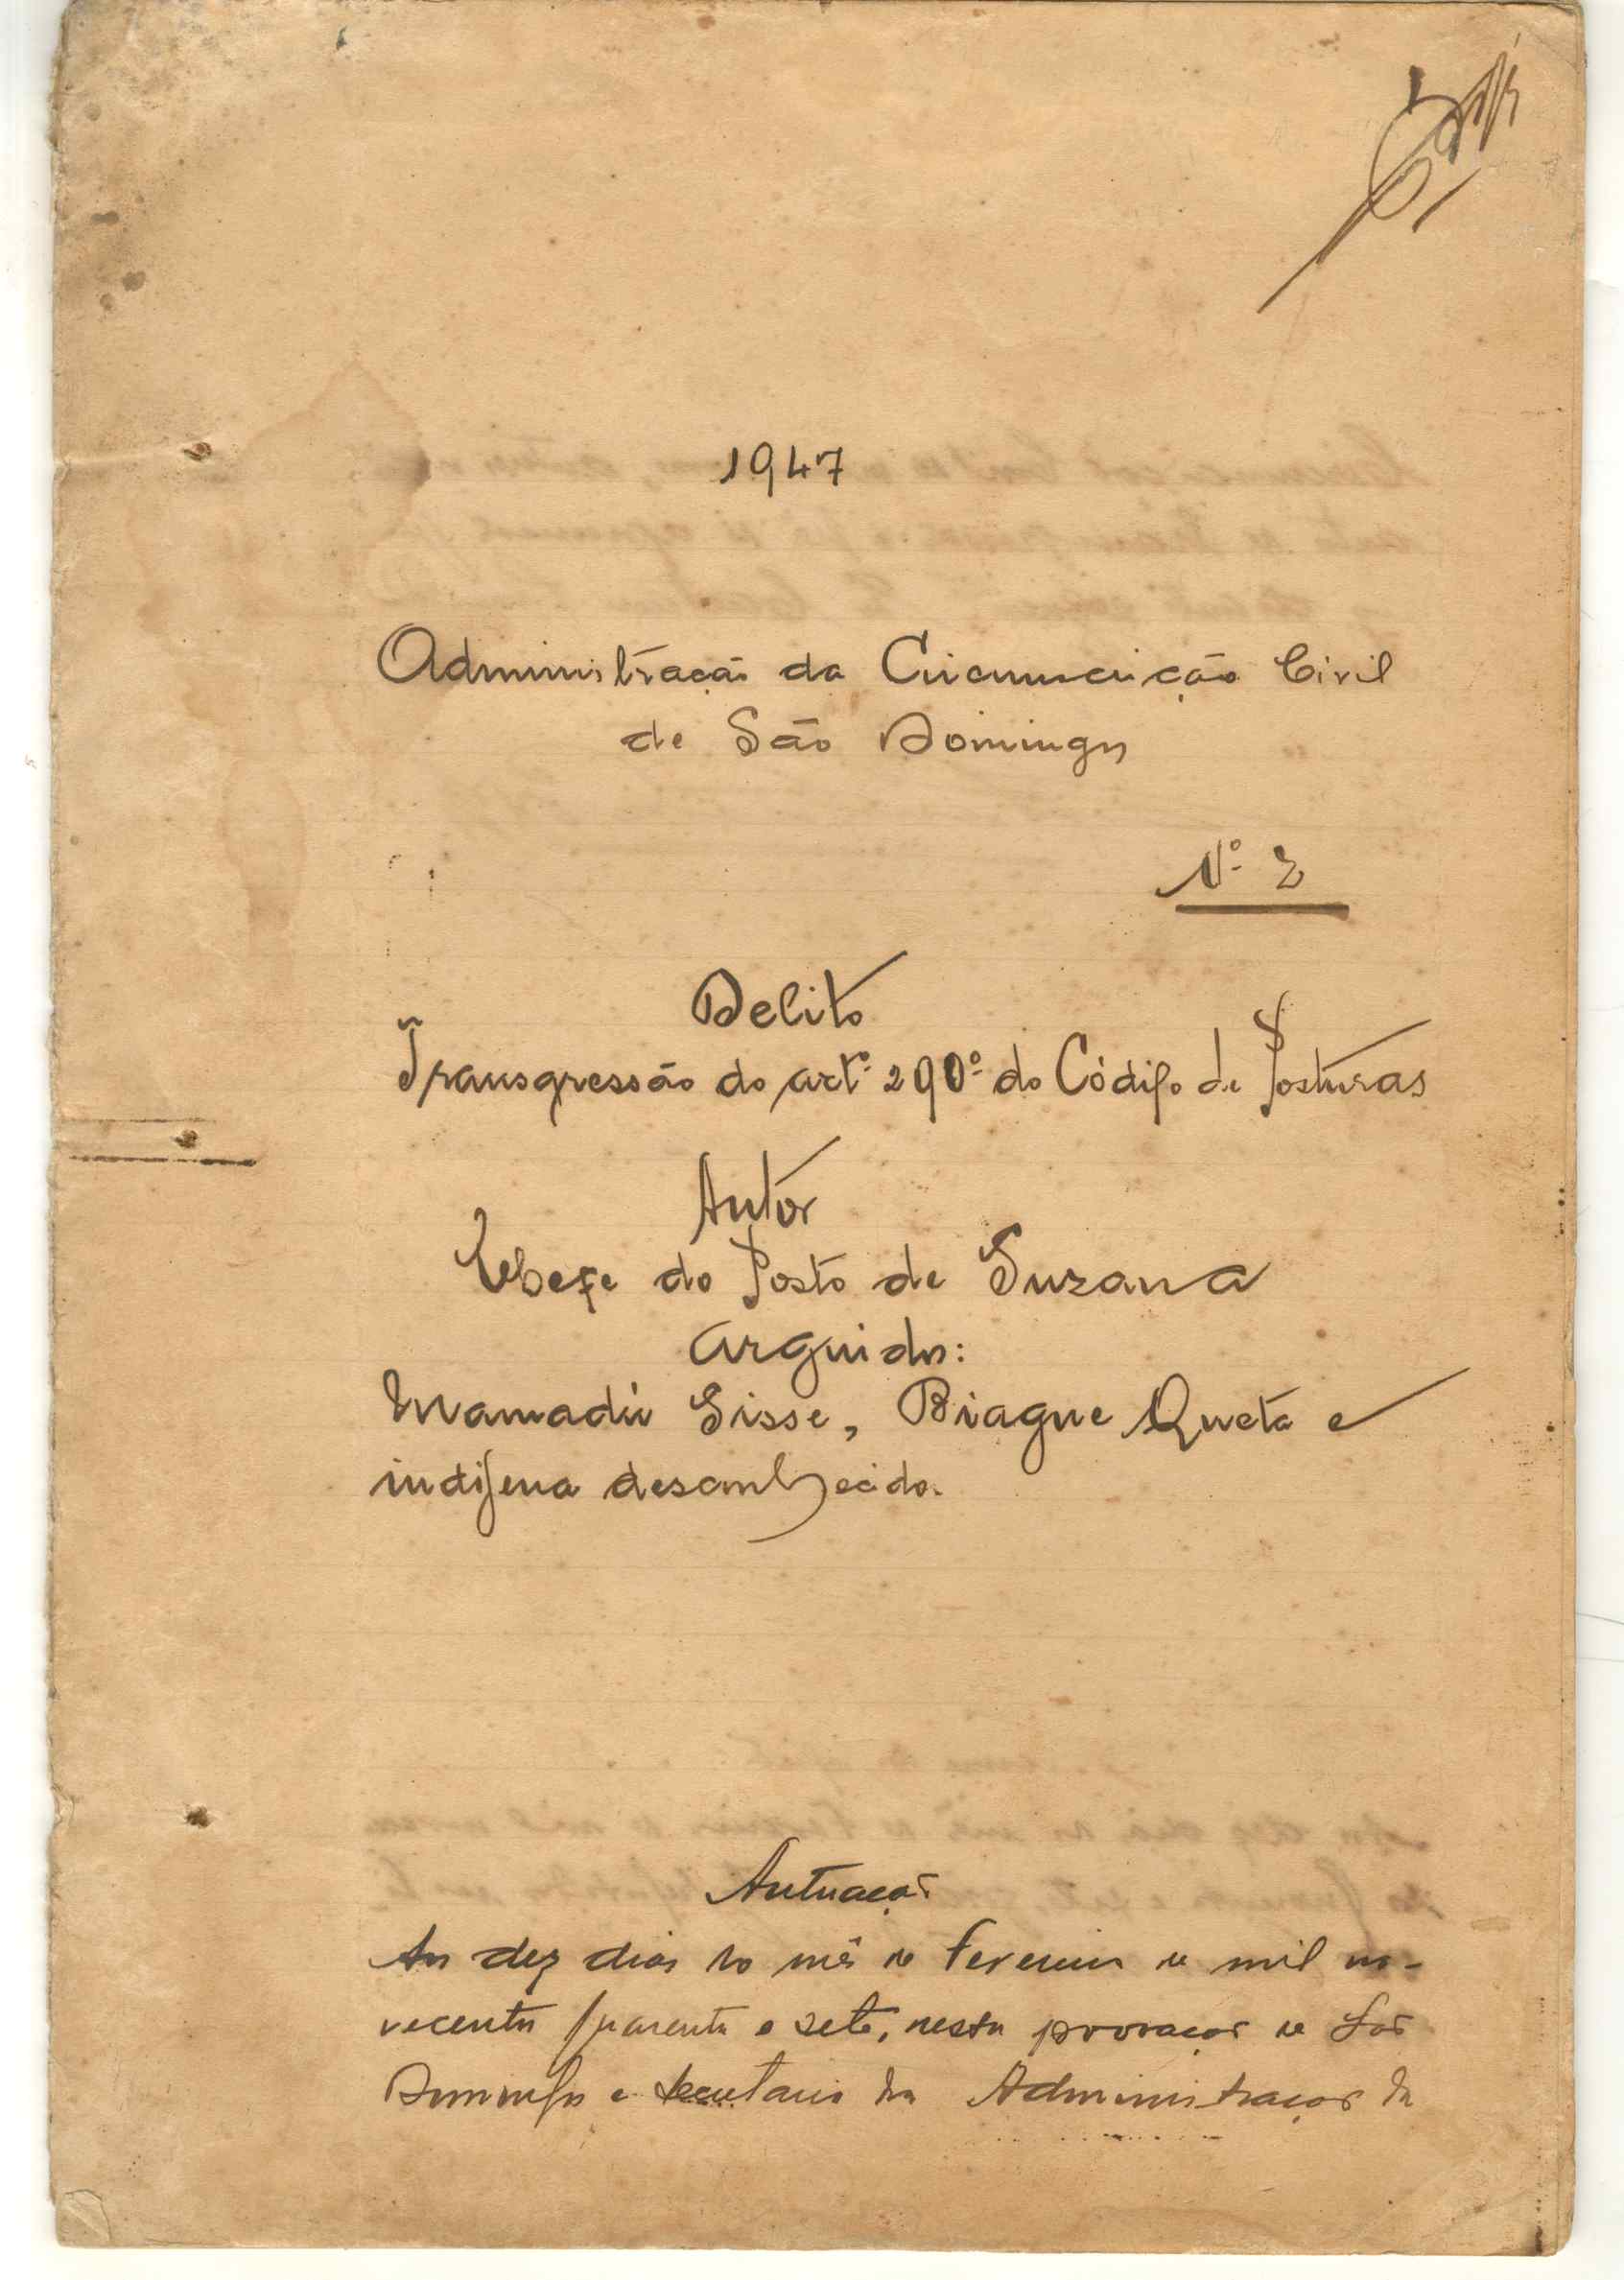 1947
Administração da Circunscrição Civil
de São Domingos
Nº 2
Delito
Transgressão do artº 290º do Código de Posturas
Autor
Chefe do Posto de Suzana
Arguidos:
Mamadú Sisse, Biague Queta e
indígena desconhecido.
Autuação
Aos dez dias do mês de Fevereiro de mil no-
vecentos quarenta e sete, nesta povoação de São
Domingos e Secretaria da Administração da